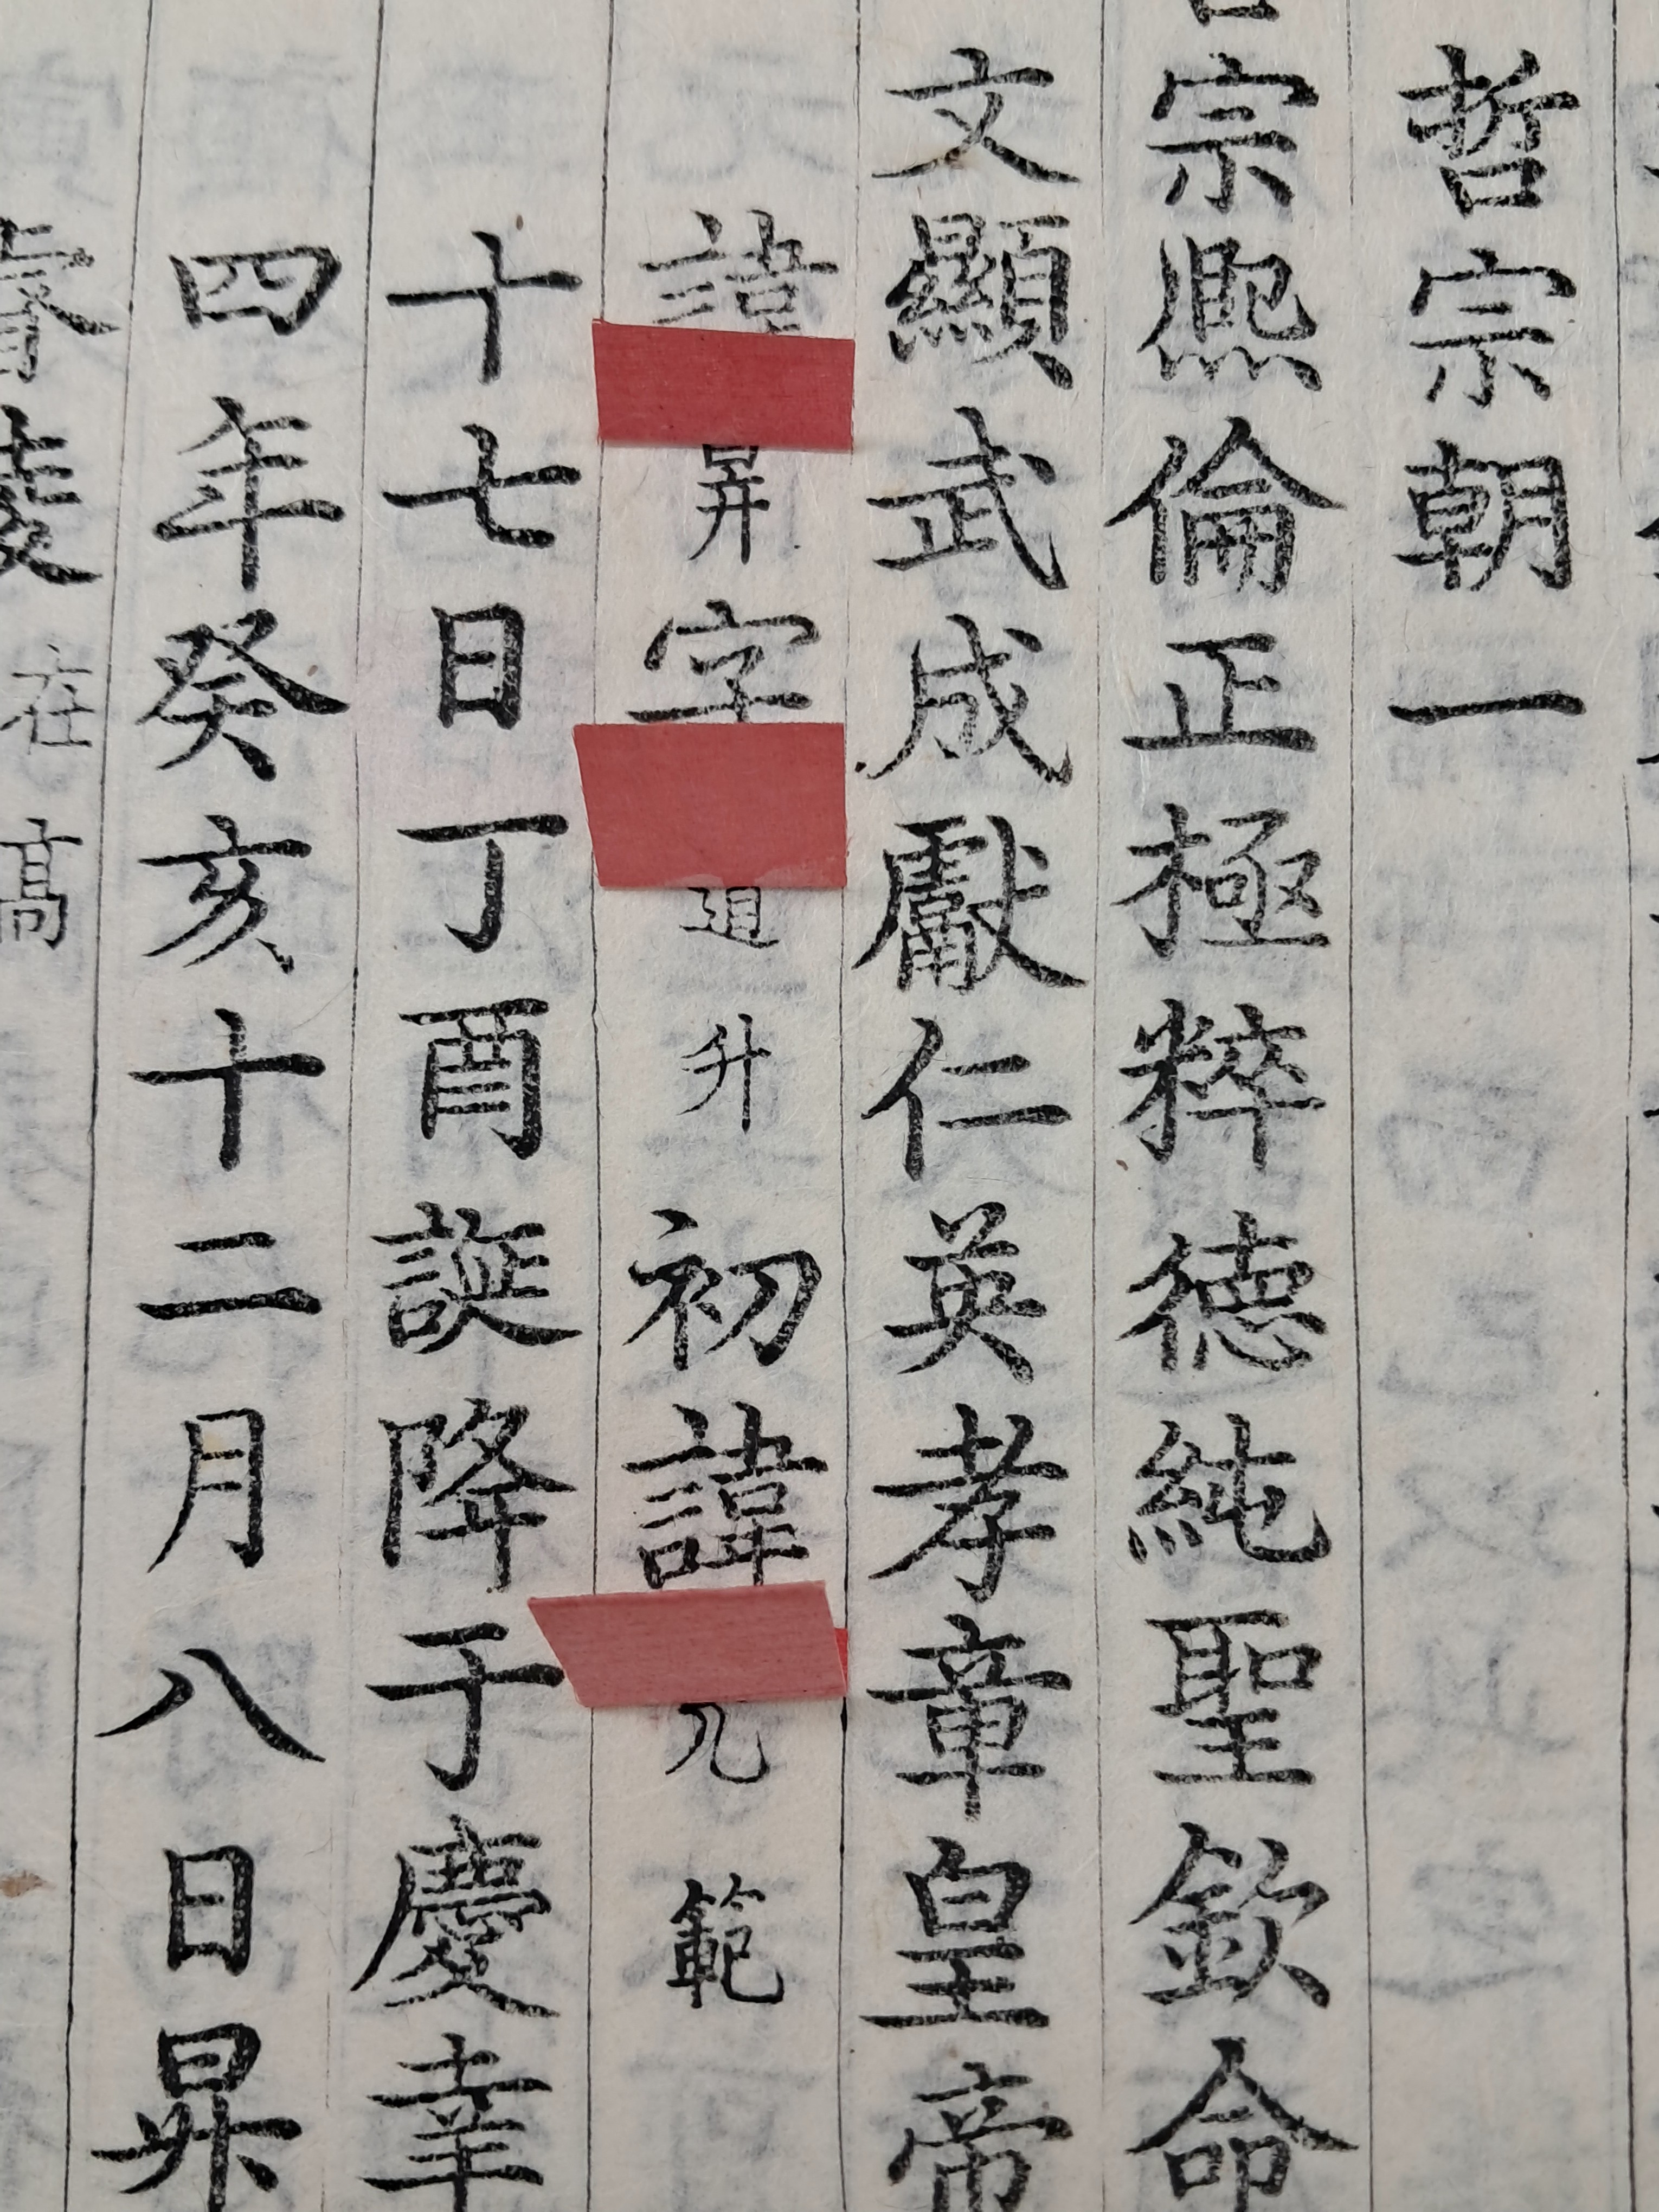 哲宗朝一
宗熙倫正極粹德純聖欽命
文顯武成獻仁英孝章皇帝
諱昪字道升初諱元範
十七日丁酉誕降于慶幸
四年癸亥十二月八日昇
陵在高